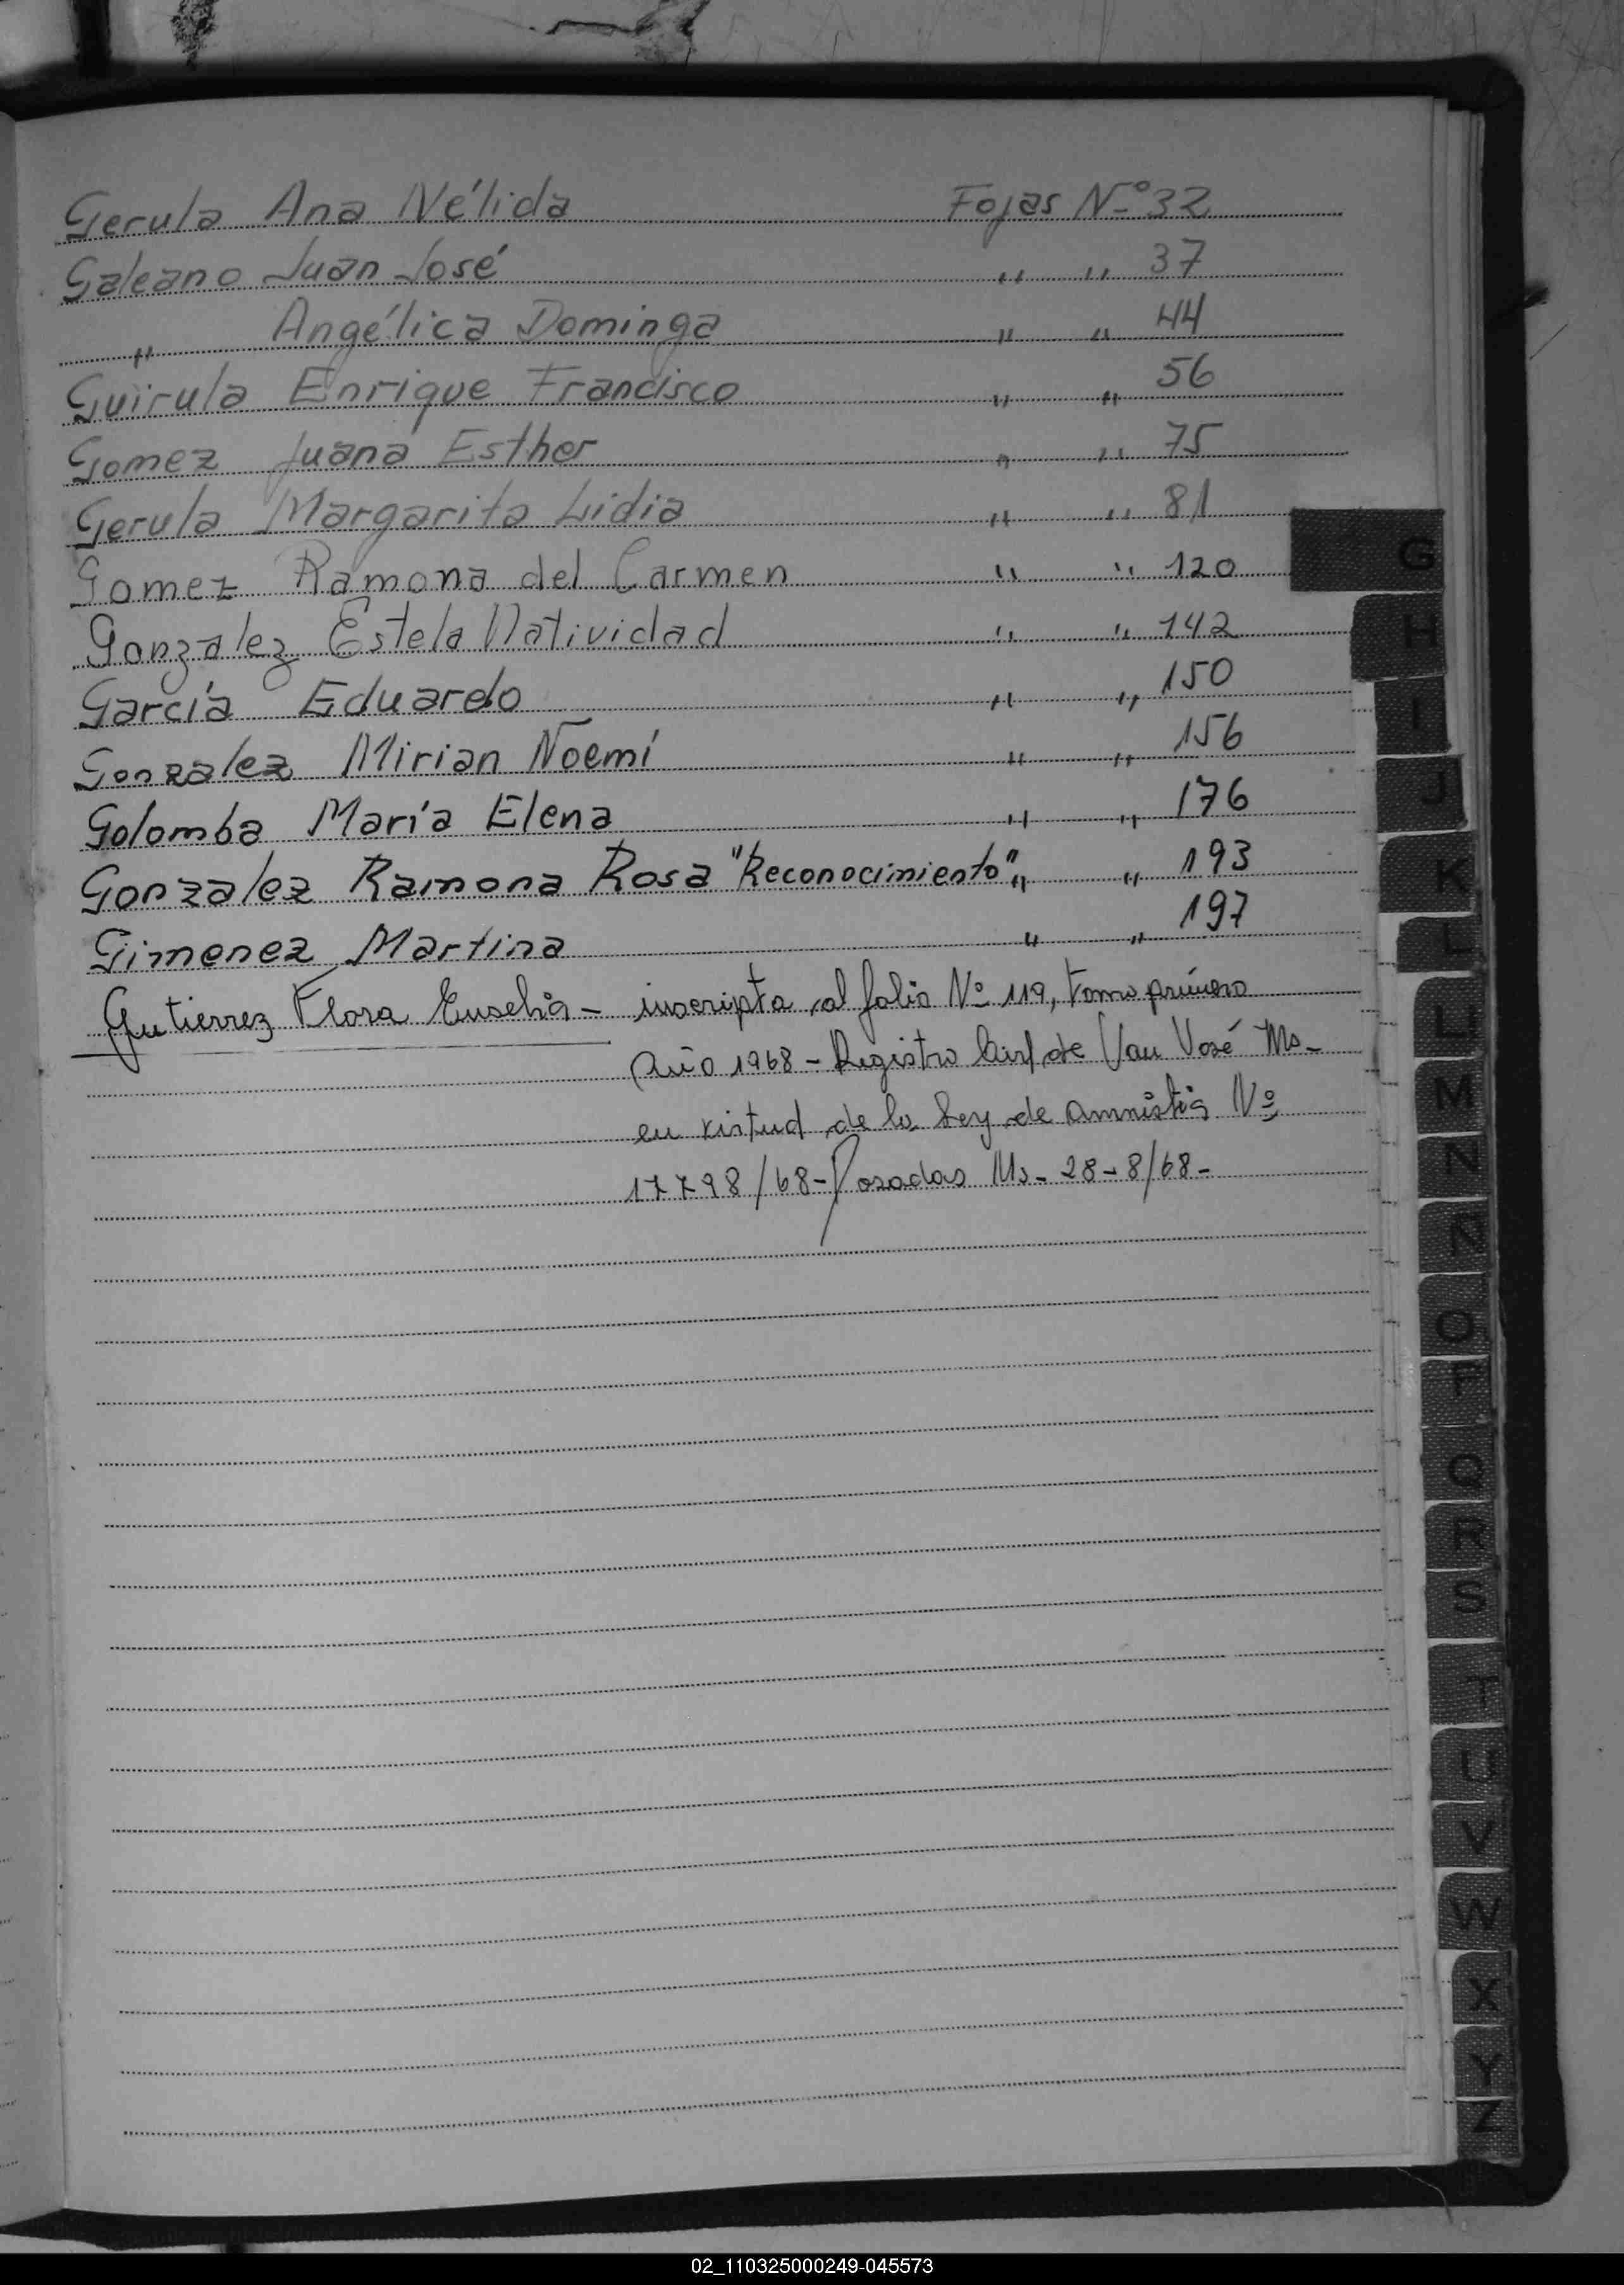 Gerula Ana Nélida Fojas Nº 32
Galeano Juan José " " 37
" Angélica Dominga " " 44
Guirula Enrique Francisco " " 56
Gomez Juana Esther " " 75
Gerula Margarita Lidia " " 81
Gomez Ramona del Carmen " " 120
Gonzalez Estela Natividad " " 142
García Eduardo " " 150
Gonzalez Mirian Noemí " " 156
Golomba María Elena " " 176
Gonzalez Ramona Rosa "Reconocimiento" " " 193
Gimenez Martina " " 197
Gutierrez Flora Eusebia - inscripta al folio Nº 119, tomo primero
Año 1968 - Registro Civil de San José Ms -
en virtud de la Ley de amnistia Nº
17798/68 - Posadas Ms - 28-8/68 -
G
H
I
J
K
L
LL
M
N
Ñ
O
P
Q
R
S
T
U
V
W
X
Y
Z
02_110325000249-045573